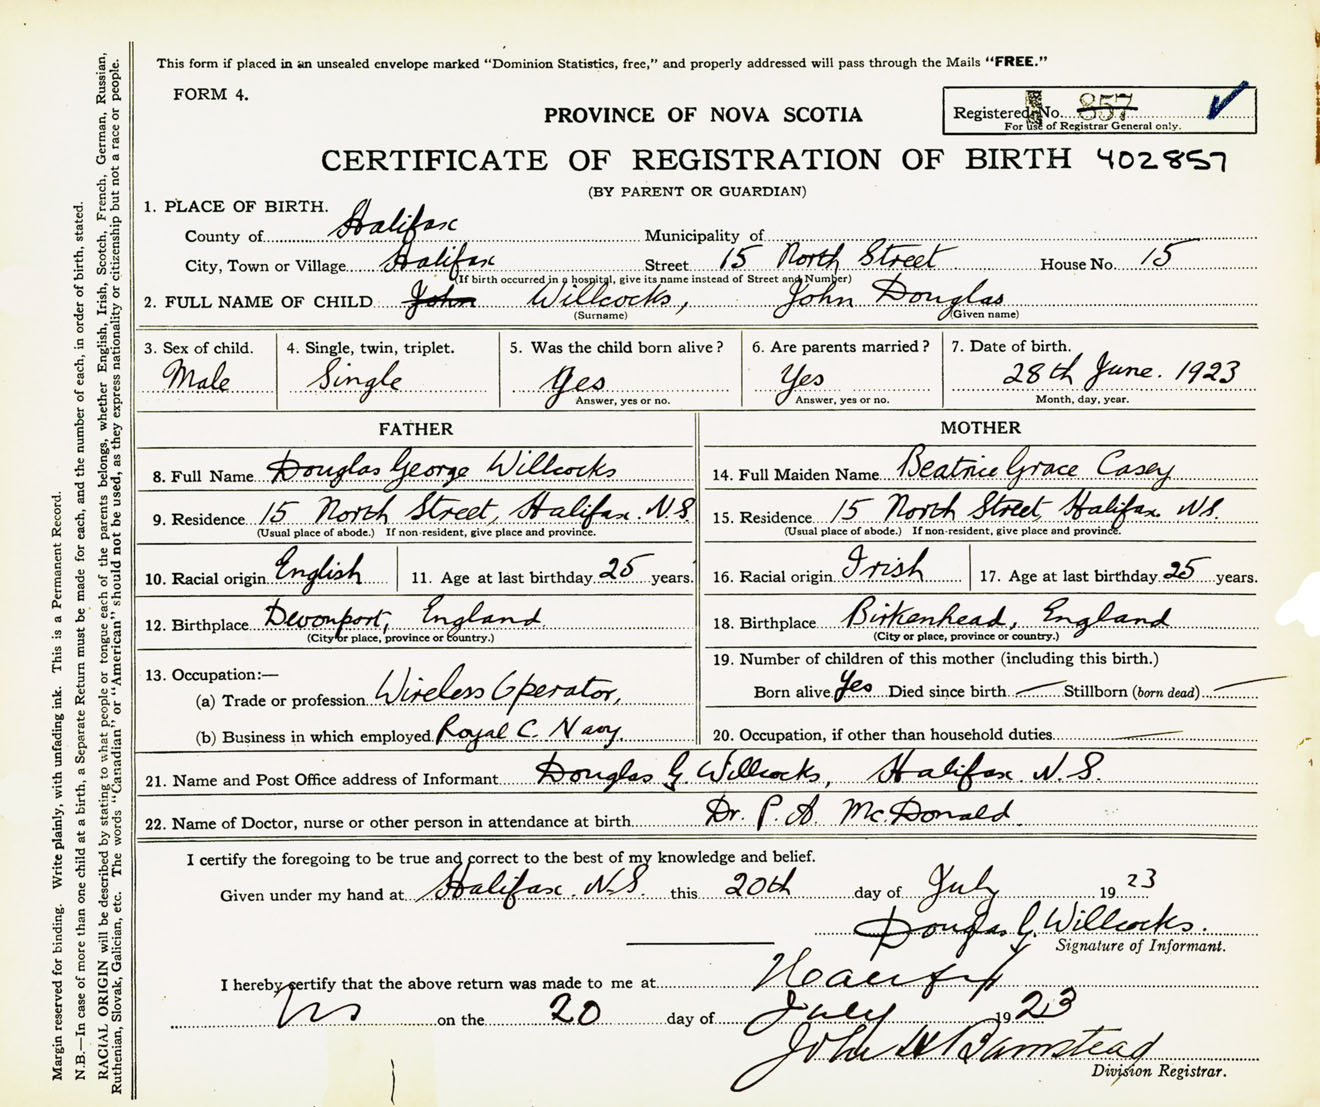 This form if placed in an unsealed envelope marked "Dominion Statistics, free," and properly addressed will pass through the Mails "FREE."
FORM 4.
Registered No. 857
For use of Registrar General only.
PROVINCE OF NOVA SCOTIA
CERTIFICATE OF REGISTRATION OF BIRTH 402857
(BY PARENT OR GUARDIAN)
1. PLACE OF BIRTH.
County of Halifax Municipality of
City, Town or Village Halifax Street 15 North Street House No. 15
(If birth occurred in a hospital, give its name instead of Street and Number)
2. FULL NAME OF CHILD John Willcocks, John Douglas
(Surname) (Given name)
3. Sex of child. 4. Single, twin, triplet. 5. Was the child born alive? 6. Are parents married? 7. Date of birth.
Male Single Yes Yes 28th June. 1923
Answer, yes or no. Answer, yes or no. Month, day, year.
FATHER
8. Full Name Douglas George Willcocks
9. Residence 15 North Street, Halifax. N.S.
(Usual place of abode.) If non-resident, give place and province.
10. Racial origin English 11. Age at last birthday 25 years.
12. Birthplace Devonport, England
(City or place, province or country.)
13. Occupation:—
(a) Trade or profession Wireless Operator,
(b) Business in which employed Royal C. Navy.
MOTHER
14. Full Maiden Name Beatrice Grace Casey
15. Residence 15 North Street Halifax N.S.
(Usual place of abode.) If non-resident, give place and province.
16. Racial origin Irish 17. Age at last birthday 25 years.
18. Birthplace Birkenhead, England
(City or place, province or country.)
19. Number of children of this mother (including this birth.)
Born alive Yes Died since birth — Stillborn (born dead) —
20. Occupation, if other than household duties —
21. Name and Post Office address of Informant Douglas G. Willcocks, Halifax N.S.
22. Name of Doctor, nurse or other person in attendance at birth Dr. P. A. McDonald
I certify the foregoing to be true and correct to the best of my knowledge and belief.
Given under my hand at Halifax. N.S. this 20th day of July 1923
Douglas G. Willcocks.
Signature of Informant.
I hereby certify that the above return was made to me at Halifax
NS on the 20 day of July 1923
John H Barnstead
Division Registrar.
Margin reserved for binding. Write plainly, with unfading ink. This is a Permanent Record.
N.B.—In case of more than one child at a birth, a Separate Return must be made for each, and the number of each, in order of birth, stated.
RACIAL ORIGIN will be described by stating to what people or tongue each of the parents belongs, whether English, Irish, Scotch, French, German, Russian,
Ruthenian, Slovak, Galician, etc. The words "Canadian" or "American" should not be used, as they express nationality or citizenship but not a race or people.